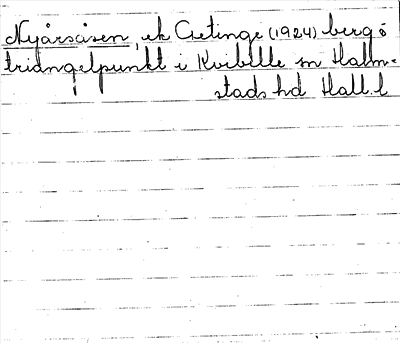 Nyårsåsen, ek Getinge (1924) berg ö
triangelpunkt i Kvibille sn Halm-
stads hd Hall. l